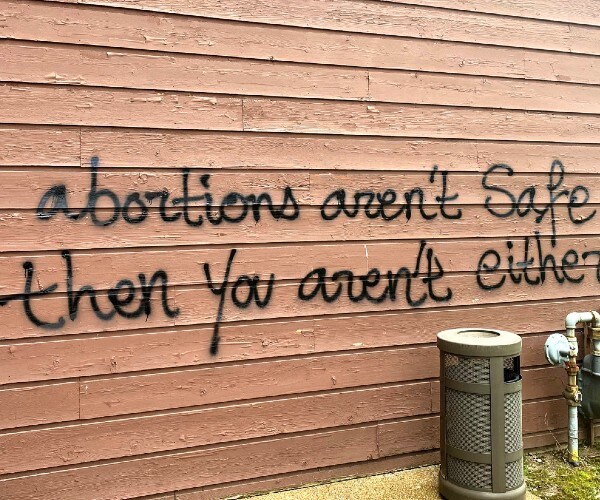 abortions aren't Safe
then You aren't either